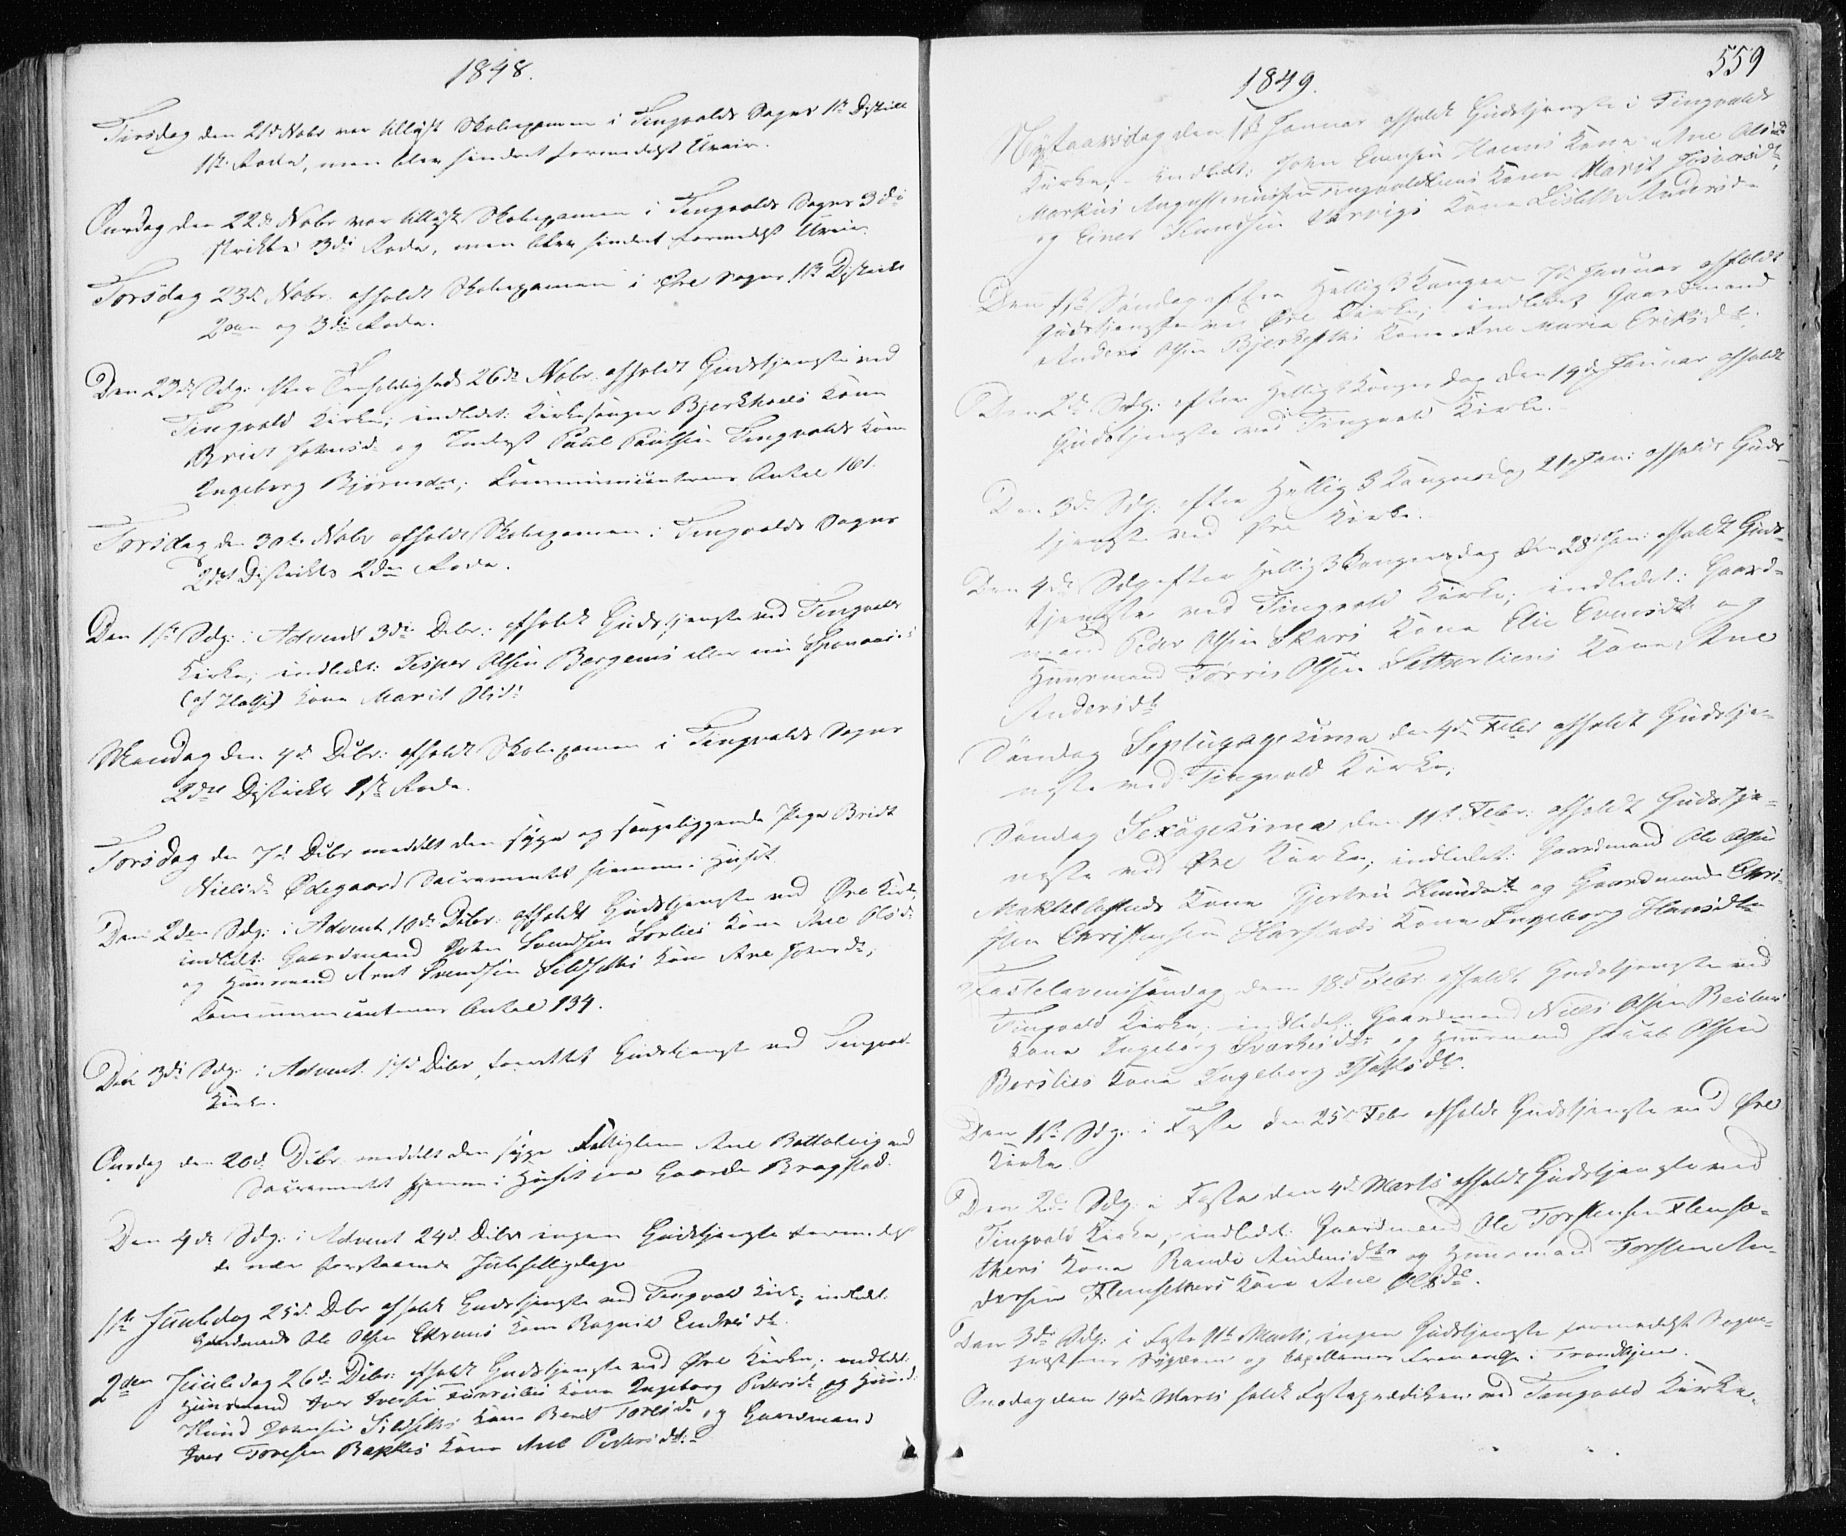 1848.
Tirsdag den 21de Nobr var tillyst Skoleexamen i Tingvolds Sogns 1ste Distrikts
1ste Rode, men blev hindret formedelst Uveir.
Onsdag den 22de Nobr var tillyst Skoleexamen i Tingvolds Sogns 3die
strikts 3die Rode, men blev hindret formedelst Uveir.
Torsdag 23de Nobr. afholdt Skoleexamen i Øre Sogns 1ste Distrikts
2den og 3die Rode.
Den 23de Sdg. efter Trefoldighed 26de Nobr. afholdt Gudstjeneste ved
Tingvold Kirke; indledet: Kirkesanger Bjerkhoels Kone
Brit Johnsd. og Paul Paulsen Tingvolds Kone
Ingeborg Bjørnsdtr; Communicanternes Antal 161.
Torsdag den 30te Nobr afholdt Skoleexamen i Tingvolds Sogns
2det Distrikts 2den Rode.
Den 1ste Sdg. i Advent 3die Debr: afholdt Gudstjeneste ved Tingvolds
Kirke; indledet: Jesper Olsen Bergems eller nu
(af Halse) Kone Marit Olsd:
Mandag den 4de Debr: afholdt Skoleexamen i Tingvolds Sogns
2det Distrikts 1ste Rode.
Torsdag den 7de Debr meddelt den syge og sengeliggende Pige Bridt
Nielsdr Ødegaard Sacramentet hjemme i Huset.
Den 2den Sdg: i Advent 10de Debr: afholdt Gudstjeneste ved Øre Kirke,
indledt: Gaardmand John Svendsen Sorlies Kone Ane Olsd:
og Huusmand Arnt Svendsen Sildsetles Kone Ane Johnsdr;
Kommunicanternes Antal 134.
Den 3die Sdg: i Advent 17de Debr, forrettet Gudstjeneste ved Tingvold
Kirke.
Onsdag den 20de Debr meddelt den syge Fattiglem Ane Bottolvig med
Sacramentet hjemme i Huset paa Gaarden Bragstad.
Den 4de Sdg: i Advent 24de Debr ingen Gudstjeneste formedelst
de nær forestaaende Julehelligdage
1ste Juuledag 25de Debr afholdt Gudstjeneste ved Tingvold Kirke, indledt:
Gaardmand Ole Olsen Ekrems Kone Ragnild Endresdr.
2den Juuledag 26de Debr: afholdt Gudstjeneste ved Øre Kirke, indledet:
Huusmand Iver Iversen Kone Ingeborg Pedersdr og Huusmd
Knud Johnsen Sildsetles Kone Beret Toresdr og Gaardmand
Iver Toresen Bakkes Kone Ane Pedersdtr.
559
1849.
Nytaarsdag den 1ste Januar afholdt Gudstjeneste i Tingvolds
Kirke; indledt: John Evensen Kone Ane Olsd
Markus Augustinusen Tingvoldliens Kone Marit
og Einer Knudsen Kone Lisbeth Andersd.
Den 1ste Søndag efter Hellig 3 Konger 7de Januar afholdt
Gudstjeneste ved Øre Kirke; indledet Gaardmand
Anders Olsen Kone Ane Maria Eriksdtr.
Den 2de Sdg: efter Hellig 3 Kongers dag den 14de Januar afholdt
Gudstjeneste ved Tingvold Kirke.
Den 3de Sdg. efter Hellig 3 Kongersdag 21de Jan: afholdt Guds-
tjeneste ved Øre Kirke.
Den 4de Sdg efter Hellig 3 Kongersdag den 28de Jan: afholdt Guds-
tjeneste ved Tingvold Kirke; indledet: Gaard-
mand Peder Olsen Skars Kone Elie Evensdtr og
Huusmand Torris Olsen Kone Ane
Andersdtr
Søndag Septuagesima den 4de Febr afholdt Gudstje-
neste ved Tingvold Kirke,
Søndag Sexagesima den 11te Febr. afholdt Gudstje-
neste ved Øre Kirke, indledet: Gaardmand Ole Olsen
Kone Gjertru Knudsdtr og Gaardmand Chri-
sten Christensen Harstads Kone Ingeborg Hansdtr
Fastelavnssøndag den 18de Febr. afholdt Gudstjeneste ved
Tingvold Kirke, indledet: Gaardmand Niels Olsen
Kone Ingeborg og Huusmand Olsen
Kone Ingeborg
Den 1ste Sdg. i Faste den 25de Febr afholdt Gudstjeneste ved Øre
Kirke.
Den 2de Sdg. i Faste den 4de Marts afholdt Gudstjeneste ved
Tingvold Kirke, indledet: Gaardmand Ole Torstensen Flemsæ-
thers Kone Randi Andersdtr og Huusmand Torsten An-
dersen Flemsethers Kone Ane Olsdr.
Den 3die Sdg: i Faste 11te Marts, ingen Gudstjeneste formedelst Sogne-
præstens Sygdom og Capellanens Fraværelse i Trondhjem.
Onsdag den 14de Marts holdt Fasteprædiken ved Tingvold Kirke.